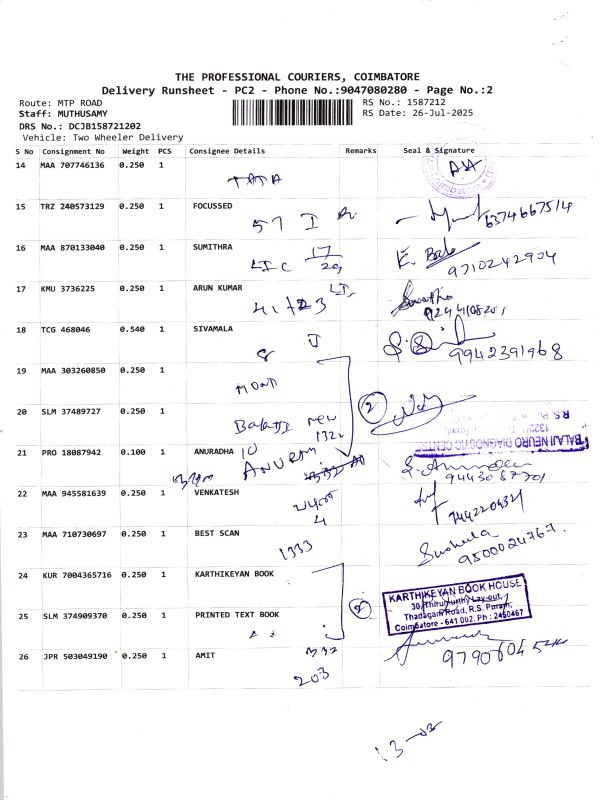 THE PROFESSIONAL COURIERS, COIMBATORE
Delivery Runsheet - PC2 - Phone No.:9047080280 - Page No.:2
Route: MTP ROAD
RS No.: 1587212
Staff: MUTHUSAMY
RS Date: 26-Jul-2025
DRS No.: DCJB158721202
Vehicle: Two Wheeler Delivery
S No Consignment No Weight PCS Consignee Details Remarks Seal & Signature
14 MAA 707746136 0.250 1
TATA
15 TRZ 240573129 0.250 1 FOCUSSED
57 I
6374667514
16 MAA 870133040 0.250 1 SUMITHRA
LIC 17/29
K. Bala
9710242904
17 KMU 3736225 0.250 1 ARUN KUMAR
41/23
18 TCG 468046 0.540 1 SIVAMALA
8
9942391968
19 MAA 303260850 0.250 1
20 SLM 37489727 0.250 1
Balaji New
132
2
BALAJI NEURO DIAGNOSTIC CENTRE
21 PRO 18087942 0.100 1 ANURADHA
10
ANURAM
9443087701
22 MAA 945581639 0.250 1 VENKATESH
4
23 MAA 710730697 0.250 1 BEST SCAN
1333
Susheela
9500024767.
24 KUR 7004365716 0.250 1 KARTHIKEYAN BOOK
2
KARTHIKEYAN BOOK HOUSE
30, Thirumurthy Lay-out,
Thadagam Road, R.S. Puram,
Coimbatore - 641 002. Ph : 2450467
25 SLM 374909370 0.250 1 PRINTED TEXT BOOK
26 JPR 503049190 0.250 1 AMIT
332
203
13